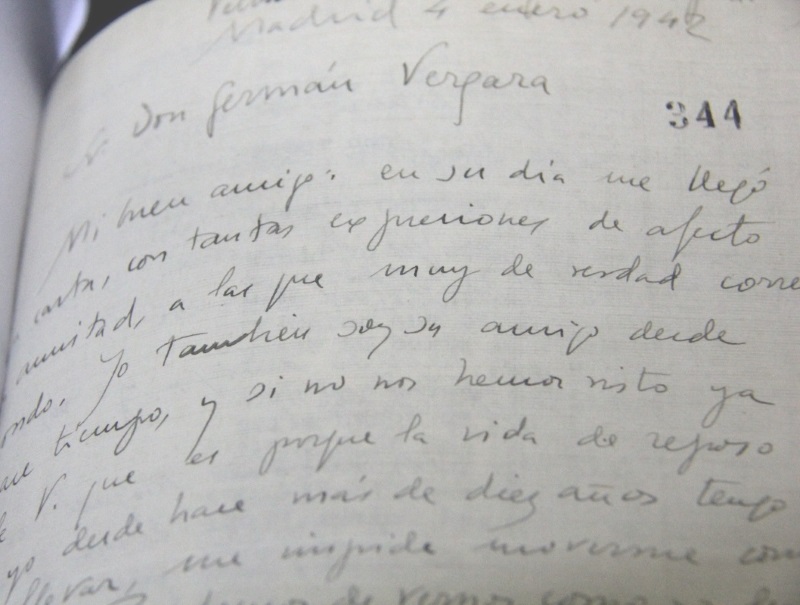 Madrid 4 enero 1942
Don Germán Vergara
344
Mi buen amigo: en su día me llegó
carta, con tantas expresiones de afecto
amistad, a las que muy de verdad corre
ondo. Yo también soy su amigo desde
tiempo, y si no nos hemos visto ya
V. que es porque la vida de reposo
yo desde hace más de diez años tengo
llevar, me impide moverme com
de vernos como